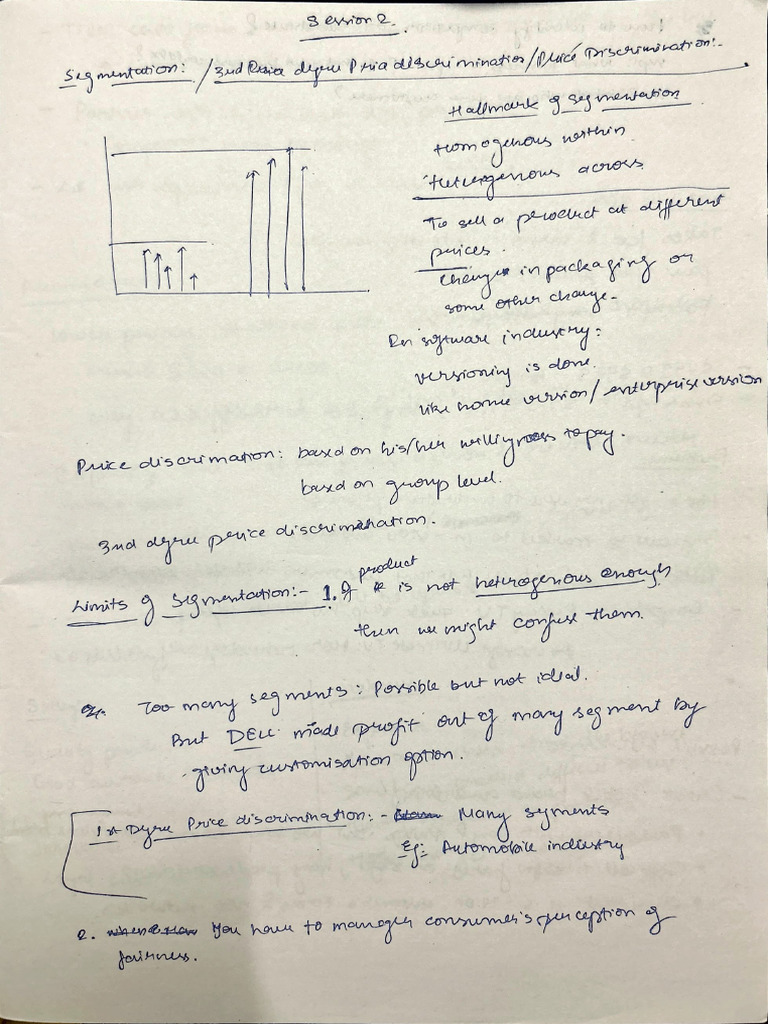 Session 2.
Segmentation: / 3rd Price degree Price discrimination / Price Discrimination:-
Hallmark of segmentation
Homogenous within
Heterogenous across
To sell a product at different
prices.
Change in packaging or
some other change.
In software industry:
versioning is done.
like home version / enterprise version
Price discrimation: based on his/her willigness to pay.
based on group level.
3rd degree price discrimination.
Limits of Segmentation:- 1. If product is not heterogenous enough
then we might confuse them.
Too many segments: Possible but not ideal.
But DELL made profit out of many segment by
giving customisation option.
1st Degree Price discrimination: - Many segments
Eg: Automobile industry
2. You have to manage consumer's perception of
fairness.